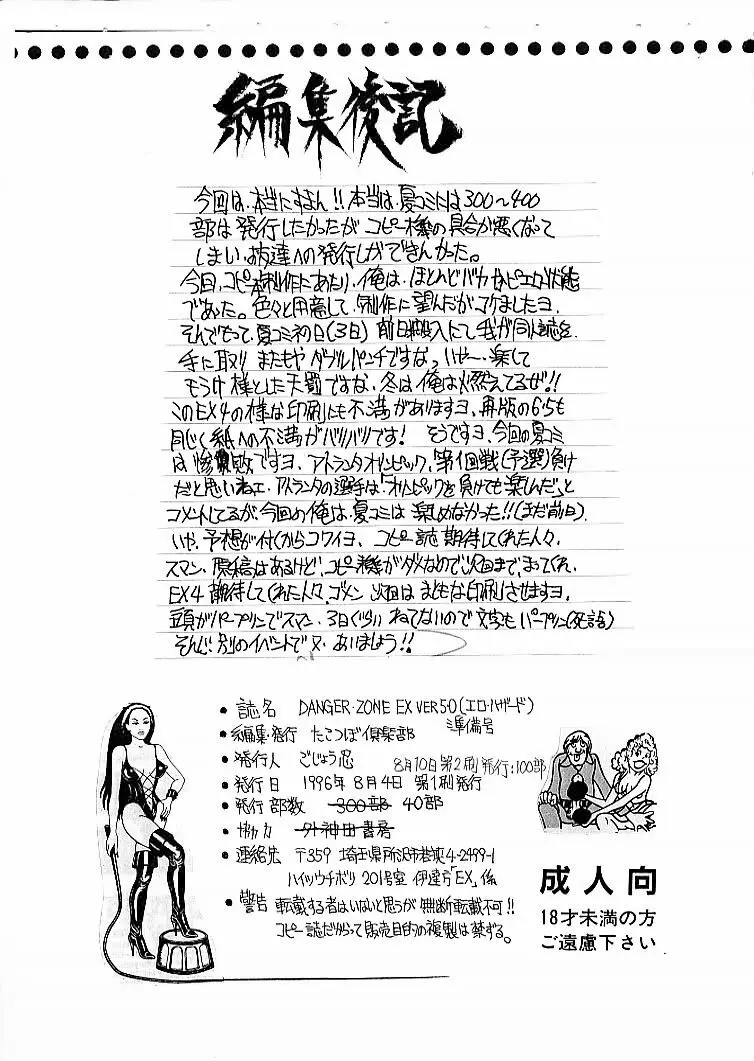 編集後記
今回は、本当にすまん!!本当は、夏コミには300〜400
部は発行したかったが コピー機の具合が悪くなって
しまい、お友達への発行しかできんかった。
今回、コピー本制作にあたり、俺は、ほとんどバカかピエロ状態
であった。色々と用意して、制作に望んだがコケましたヨ、
そんでもって、夏コミ初日(3日) 前日搬入にて我が同人誌を、
手に取り またもや ダブルパンチですな。いやー、楽して
もうけ様とした天罰ですな、冬は俺は燃えてるぜ!!
このEX4の様な印刷にも不満がありますヨ、再版の6・5も
同じく紙への不満がバリバリです! そうですヨ、今回の夏コミ
は惨敗ですヨ、アトランタオリンピック、第1回戦(予選)負け
だと思いねェ、アトランタの選手は、「オリンピックを負けても楽しんだ」と
コメントしてるが、今回の俺は、夏コミは 楽しめなかった!!(まだ前日)、
いや、予想が付くからコワイヨ、コピー誌 期待してくれた人々、
スマン、原稿はあるけど、コピー機がダメなので次回まで、まってくれ、
EX4 期待してくれた人々、ゴメン 次回は まともな印刷させますヨ、
頭がパープリンでスマン、3日ぐらい ねてないので 文字も パープリン(死語)
そんじゃ 別のイベントで 又、あいましょう!!
● 誌名 DANGER・ZONE EX VER5・0(エロ・ハザード)
準備号
● 編集・発行 たこつぼ倶楽部
● 発行人 ごじょう忍
8月10日第2刷発行:100部
● 発行日 1996年 8月4日 第1刷発行
● 発行部数 300部 40部
外神田書房
● 連絡先 〒359 埼玉県所沢市 4-2499-1
ハイツウチボリ 201号室 伊達方「EX」係
● 警告 転載する者はいないと思うが 無断転載不可!!
コピー誌だからって 販売目的の複製は禁ずる。
成人向
18才未満の方
ご遠慮下さい